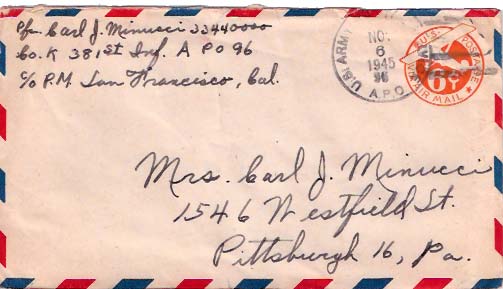 Pfc. Carl J. Minucci 33440000
Co. K 381st Inf. A PO 96
c/o P.M. San Francisco, Cal.
U.S. ARMY
NOV
6
1945
96
A.P.O.
U.S. POSTAGE
6¢
VIA AIR MAIL
Mrs. Carl J. Minucci
1546 Westfield St.
Pittsburgh 16, Pa.